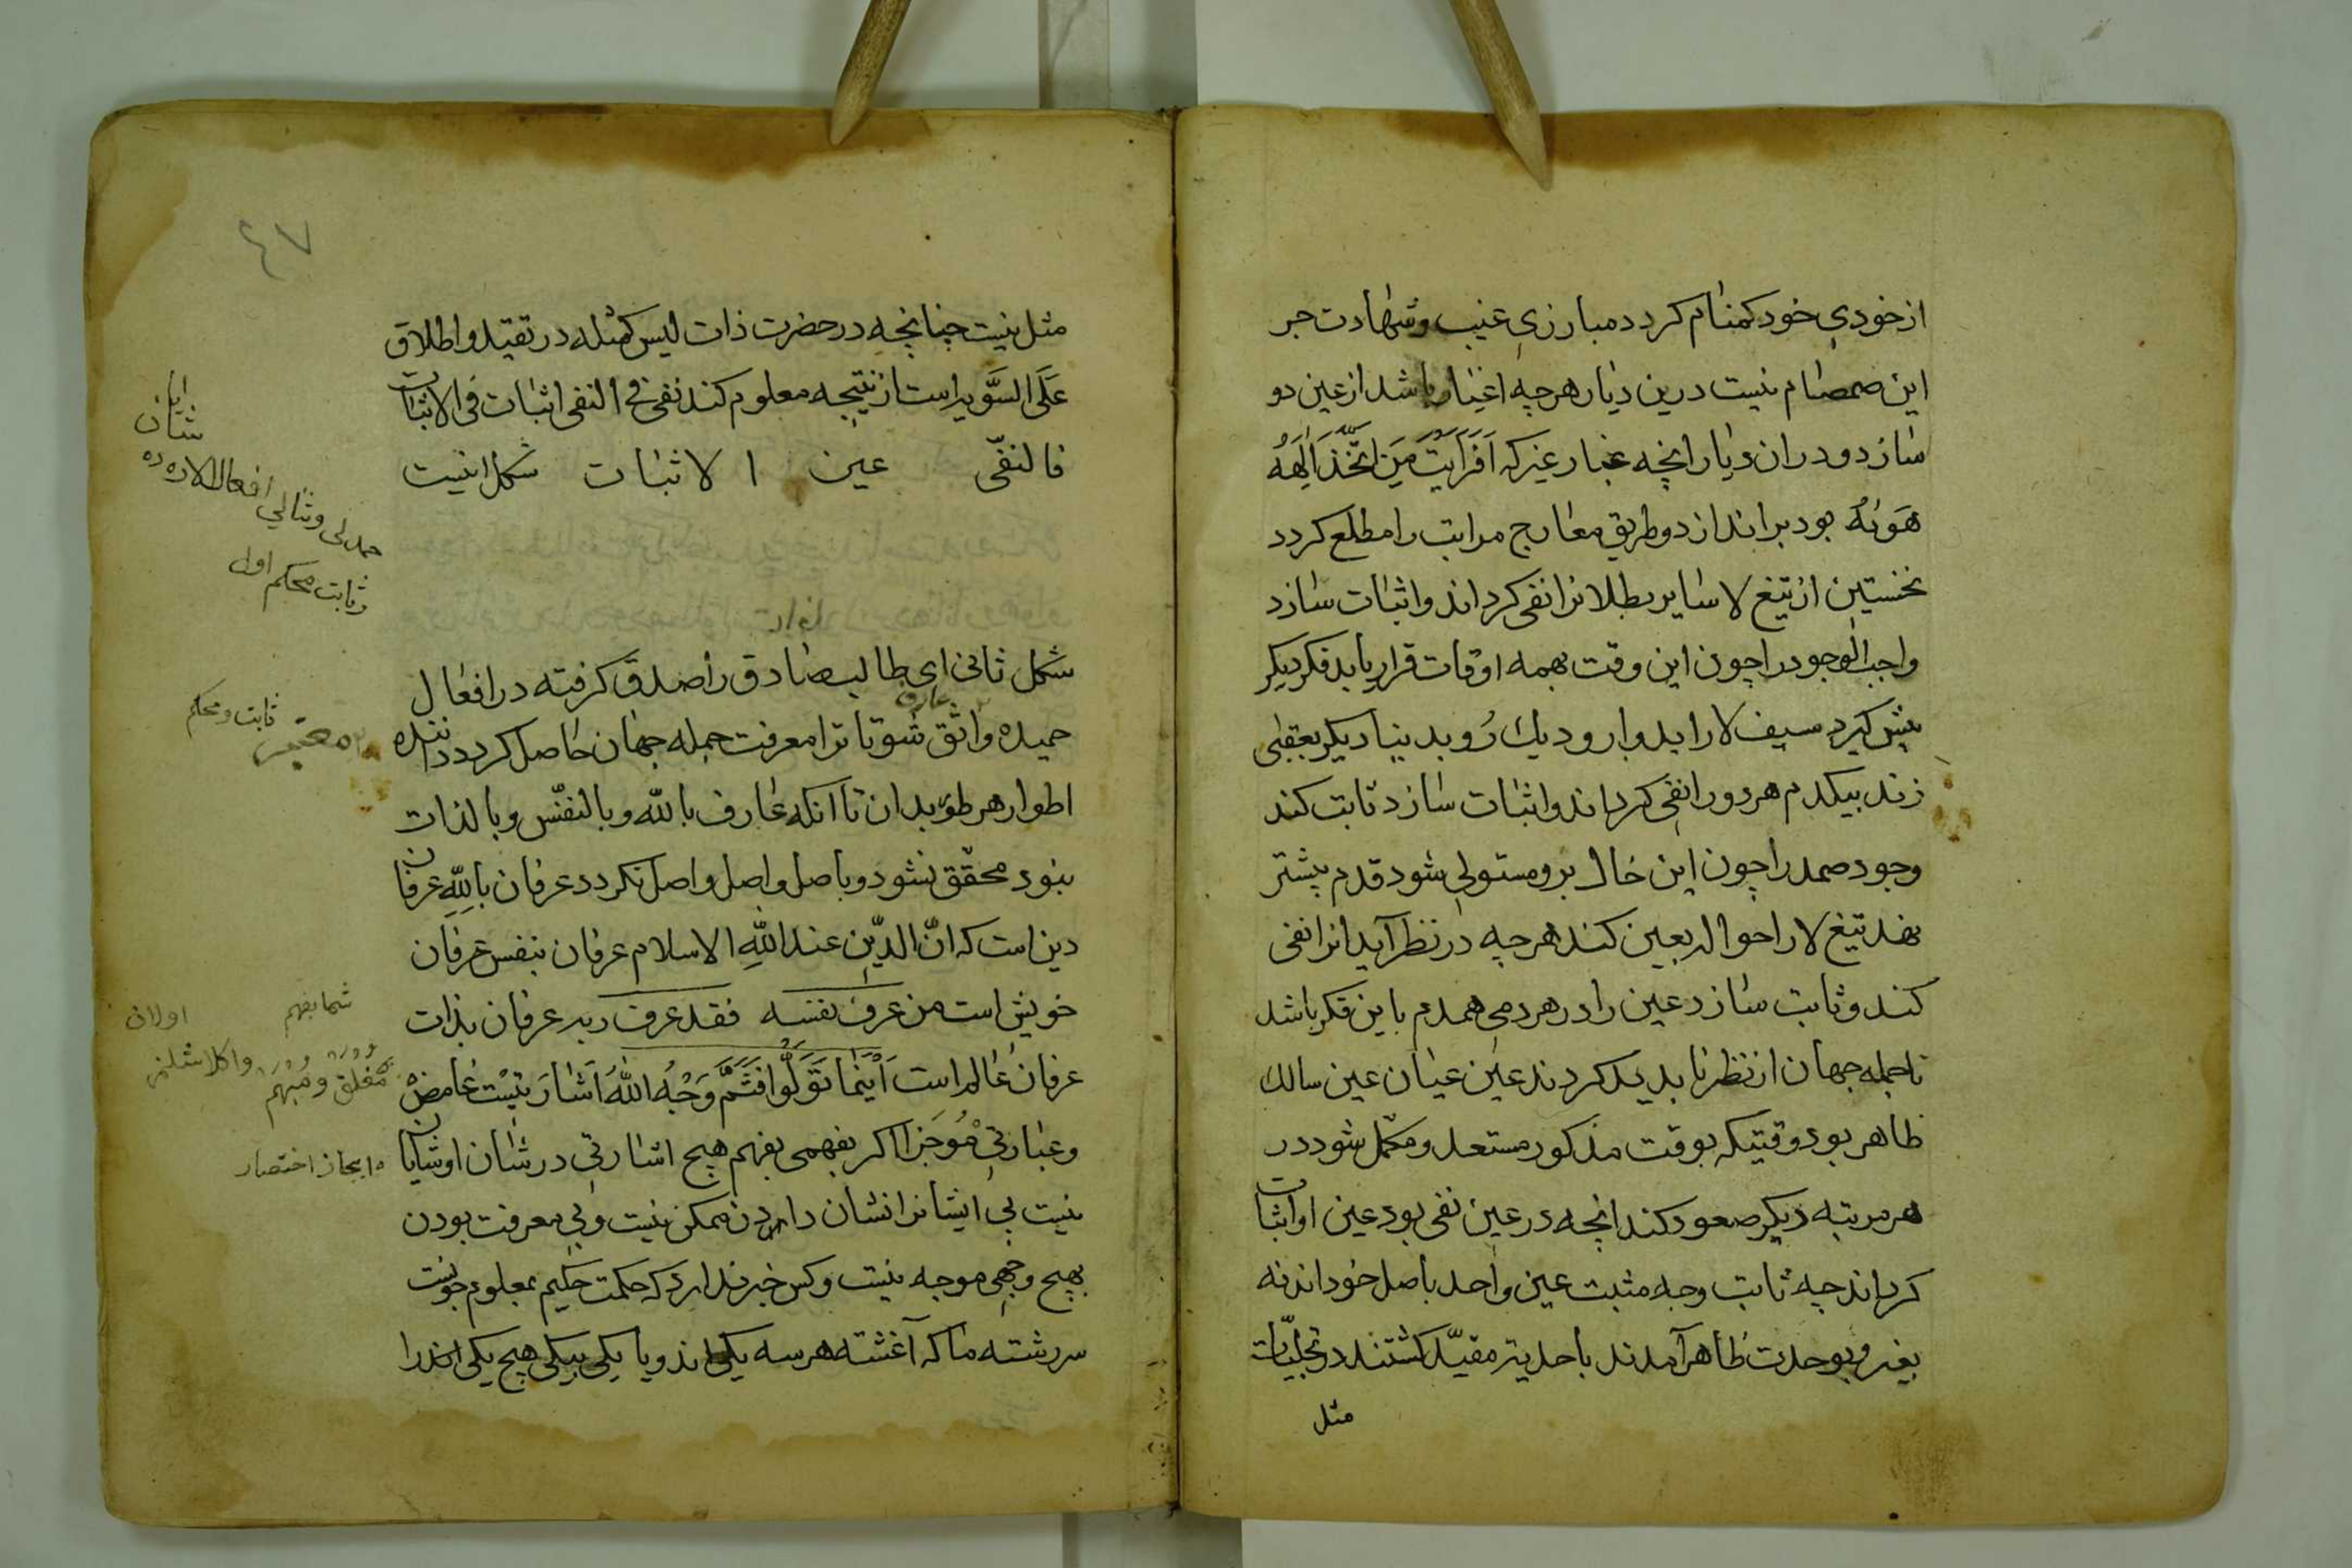 از خودی خود کمنام کردد مبارزی غیب و شهادت جر
این صمصام نیست درین دیار هرچه اغیار باشد از عین دو
سازد و دران دیار انچه غبار غیر که اَفَرَاَیتَ مَنِ اتَّخَذَ اِلٰهَهُ
هَوٰیهُ بود براندازد و طریق معارج مراتب را مطلع کردد
نخستین از تیغ لا سایر بطلانرا نفی کرداند و اثبات سازد
واجب الوجود را چون این وقت بهمه اوقات قرار یابد فکر دیکر
پیش کیرد سیف لا را بدوار و دیك رُو بدینیا دیکر بعقبی
زند بیکدم هر دو را نفی کرداند و اثبات سازد ثابت کند
وجود صمد را چون این حال برو مستولی شود قدم پیشتر
نهد تیغ لا را حواله بعین کند هرچه در نظر آید انرا نفی
کند و ثابت سازد عین را در هر دمی همدم باین فکر باشد
تا جمله جهان از نظر نابدید کردند عین عیان عین سالك
ظاهر بود وقتیکه بوقت مذکور مستعد و مکمّل شود در
هر مرتبه دیکر صعود کند انچه در عین نفی بود عین او اثبات
کرداند چه ثابت و چه مثبت عین واحد باصل خود اند نه
بغیر و بوحدت ظاهر آمدند باحدیتر مقیّد کشتند در تجلیّات
مثل
٤٧
مثل نیست چنانچه در حضرت ذات لیس کمثله در تقیّد و اطلاق
عَلَی السَّویه راست از نتیجه معلوم کند نفی فی النفی اثبات فی الاثبات
فالنفی عین الاثبات شکل اینیت
شکل ثانی ای طالب صادق را صدق کرفته در افعال
حمیده واثق شو تا ترا معرفت جمله جهان حاصل کردد داننده
اطوار هر طور بدان تا انکه عارف بالله و بالنفس و بالذات
نبود محقّق نشود و باصل واصل واصل نکردد عرفان باللّٰه عرفان
دین است که انّ الدّین عند اللّٰهِ الاسلام عرفان بنفس عرفان
خویش است من عرف نفسه فقد عرف ربه عرفان بذات
عرفان عالم است اَیْنَمَا تَوَلَّوْا فَثَمَّ وَجْهُ اللّٰهُ اَشارتیست غامِضْ
و عبارتی مُوجَز اکر بفهمی بفهم هیچ اشارتی در شان او شایان
نیست بی ایشانرا نشان دادن ممکن نیست و بی معرفت بودن
بهیچ وجهی موجه نیست و کس خبر ندارد که حکمت حکیم بمعلوم چونست
سررشته ما که آغشته هر سه یکی اند و یا یکی بیکی هیچ یکی اند را
شایان
حمدلی و ثنالی افعاللارده ده
و ثابت محکم اول
ثابت و محکم
شما بفهم
اولان
مُغلق و مُبْهَمْ
ایجاز اختصار